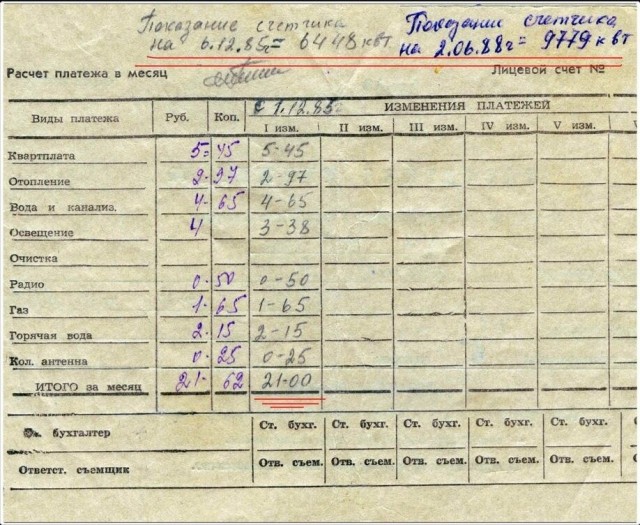 Показание счетчика
на 6.12.85г= 6448 квт
Показание счетчика
на 2.06.88г= 9779 квт
Расчет платежа в месяц
Лицевой счет №
Виды платежа Руб. Коп. с 1.12.85г ИЗМЕНЕНИЯ ПЛАТЕЖЕЙ
I изм. II изм. III изм. IV изм. V изм.
Квартплата 5- 45 5-45
Отопление 2- 97 2-97
Вода и канализ. 4- 65 4-65
Освещение 4 3-38
Очистка
Радио 0- 50 0-50
Газ 1- 65 1-65
Горячая вода 2- 15 2-15
Кол. антенна 0- 25 0-25
ИТОГО за месяц 21- 62 21-00
бухгалтер Ст. бухг. Ст. бухг. Ст. бухг. Ст. бухг. Ст. бухг.
Ответст. съемщик Отв. съем. Отв. съем. Отв. съем. Отв. съем. Отв. съем.